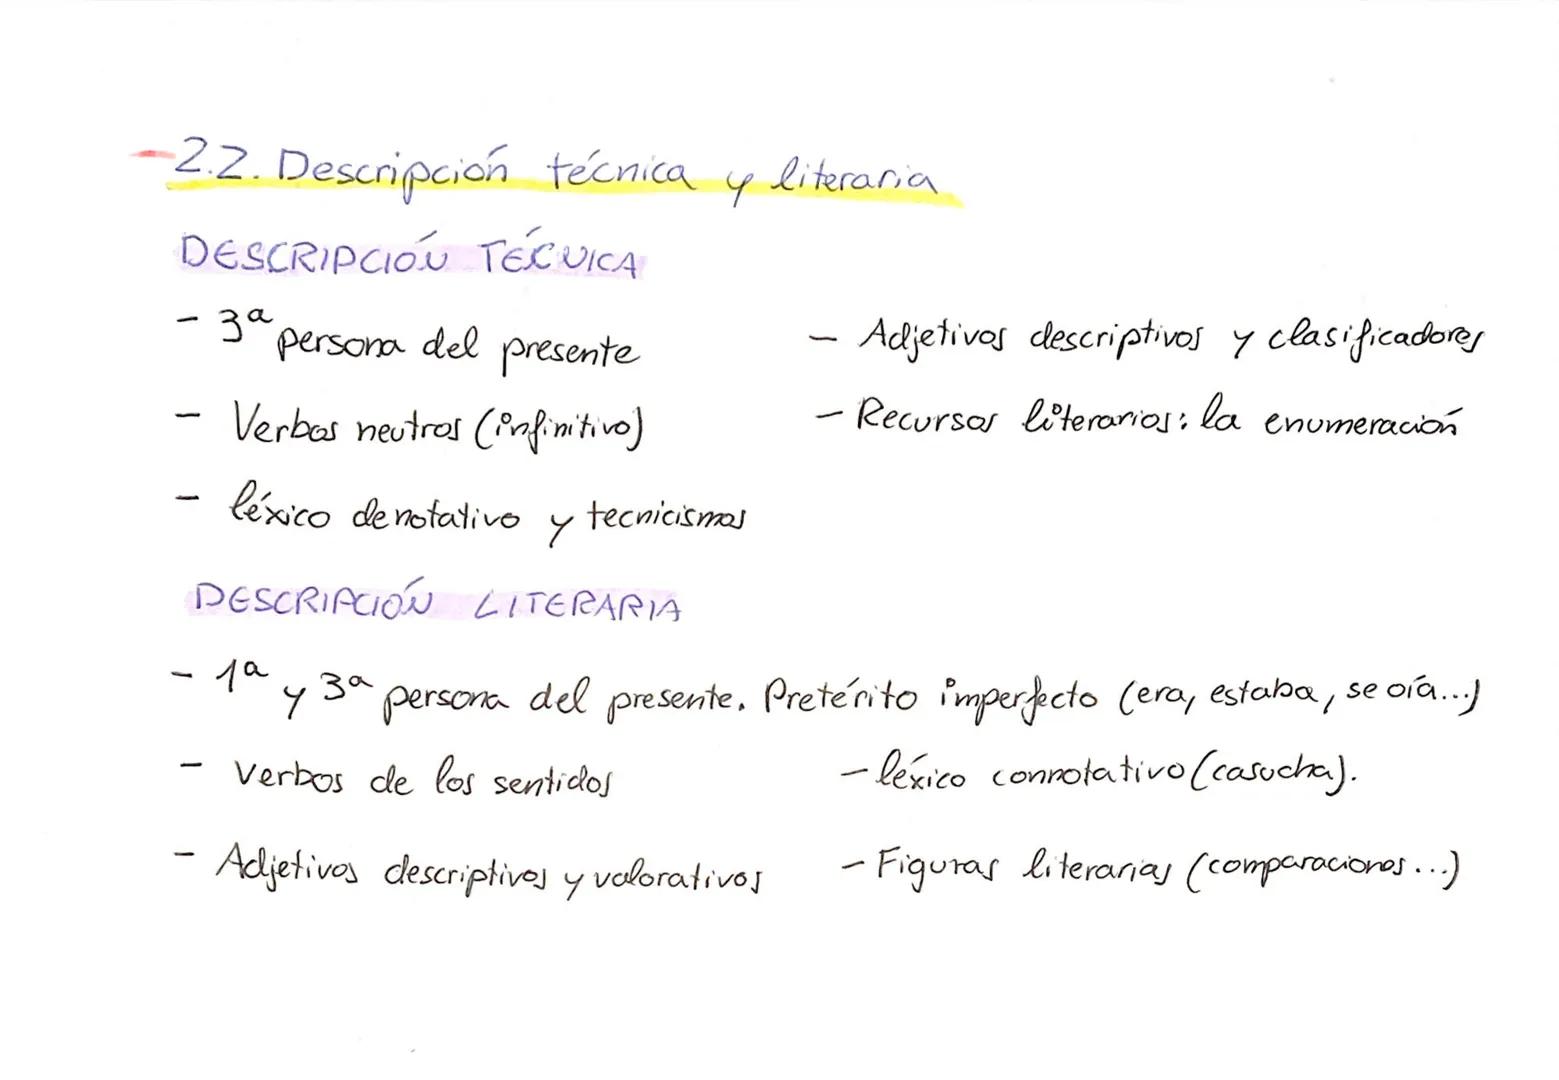 - 2.2. Descripción técnica y literaria
DESCRIPCIÓN TÉCNICA
- 3ª persona del presente
- Adjetivos descriptivos y clasificadores
- Verbos neutros (infinitivo)
- Recursos literarios: la enumeración
- léxico denotativo y tecnicismos
DESCRIPCIÓN LITERARIA
- 1ª y 3ª persona del presente. Pretérito imperfecto (era, estaba, se oía...)
- Verbos de los sentidos
- léxico connotativo (casucha).
- Adjetivos descriptivos y valorativos
- Figuras literarias (comparaciones...)